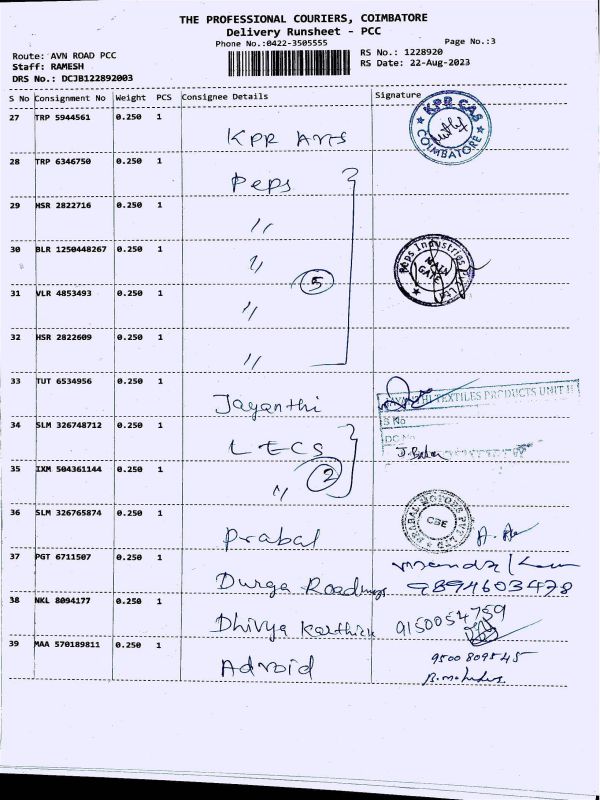 THE PROFESSIONAL COURIERS, COIMBATORE
Delivery Runsheet - PCC
Phone No.:0422-3505555
Page No.:3
Route: AVN ROAD PCC
RS No.: 1228920
Staff: RAMESH
RS Date: 22-Aug-2023
DRS No.: DCJB122892003
S No Consignment No Weight PCS Consignee Details Signature
27 TRP 5944561 0.250 1
KPR Arts
KPR CAS
COIMBATORE
28 TRP 6346750 0.250 1
Peps
29 HSR 2822716 0.250 1
"
30 BLR 1250448267 0.250 1
"
Peps Industries Pvt Ltd
MAIN
GATE
5
31 VLR 4853493 0.250 1
"
32 HSR 2822609 0.250 1
"
33 TUT 6534956 0.250 1
Jayanthi
JAYANTHI TEXTILES PRODUCTS UNIT II
S No
34 SLM 326748712 0.250 1
LECS
DC No
35 IXM 504361144 0.250 1
"
2
36 SLM 326765874 0.250 1
Prabal
PRABAL MOTORS PVT LTD
CBE
37 PGT 6711507 0.250 1
Durga Roadways
9894603478
38 NKL 8094177 0.250 1
Dhivya Karthick
9150054759
39 MAA 570189811 0.250 1
Adroid
9500809545